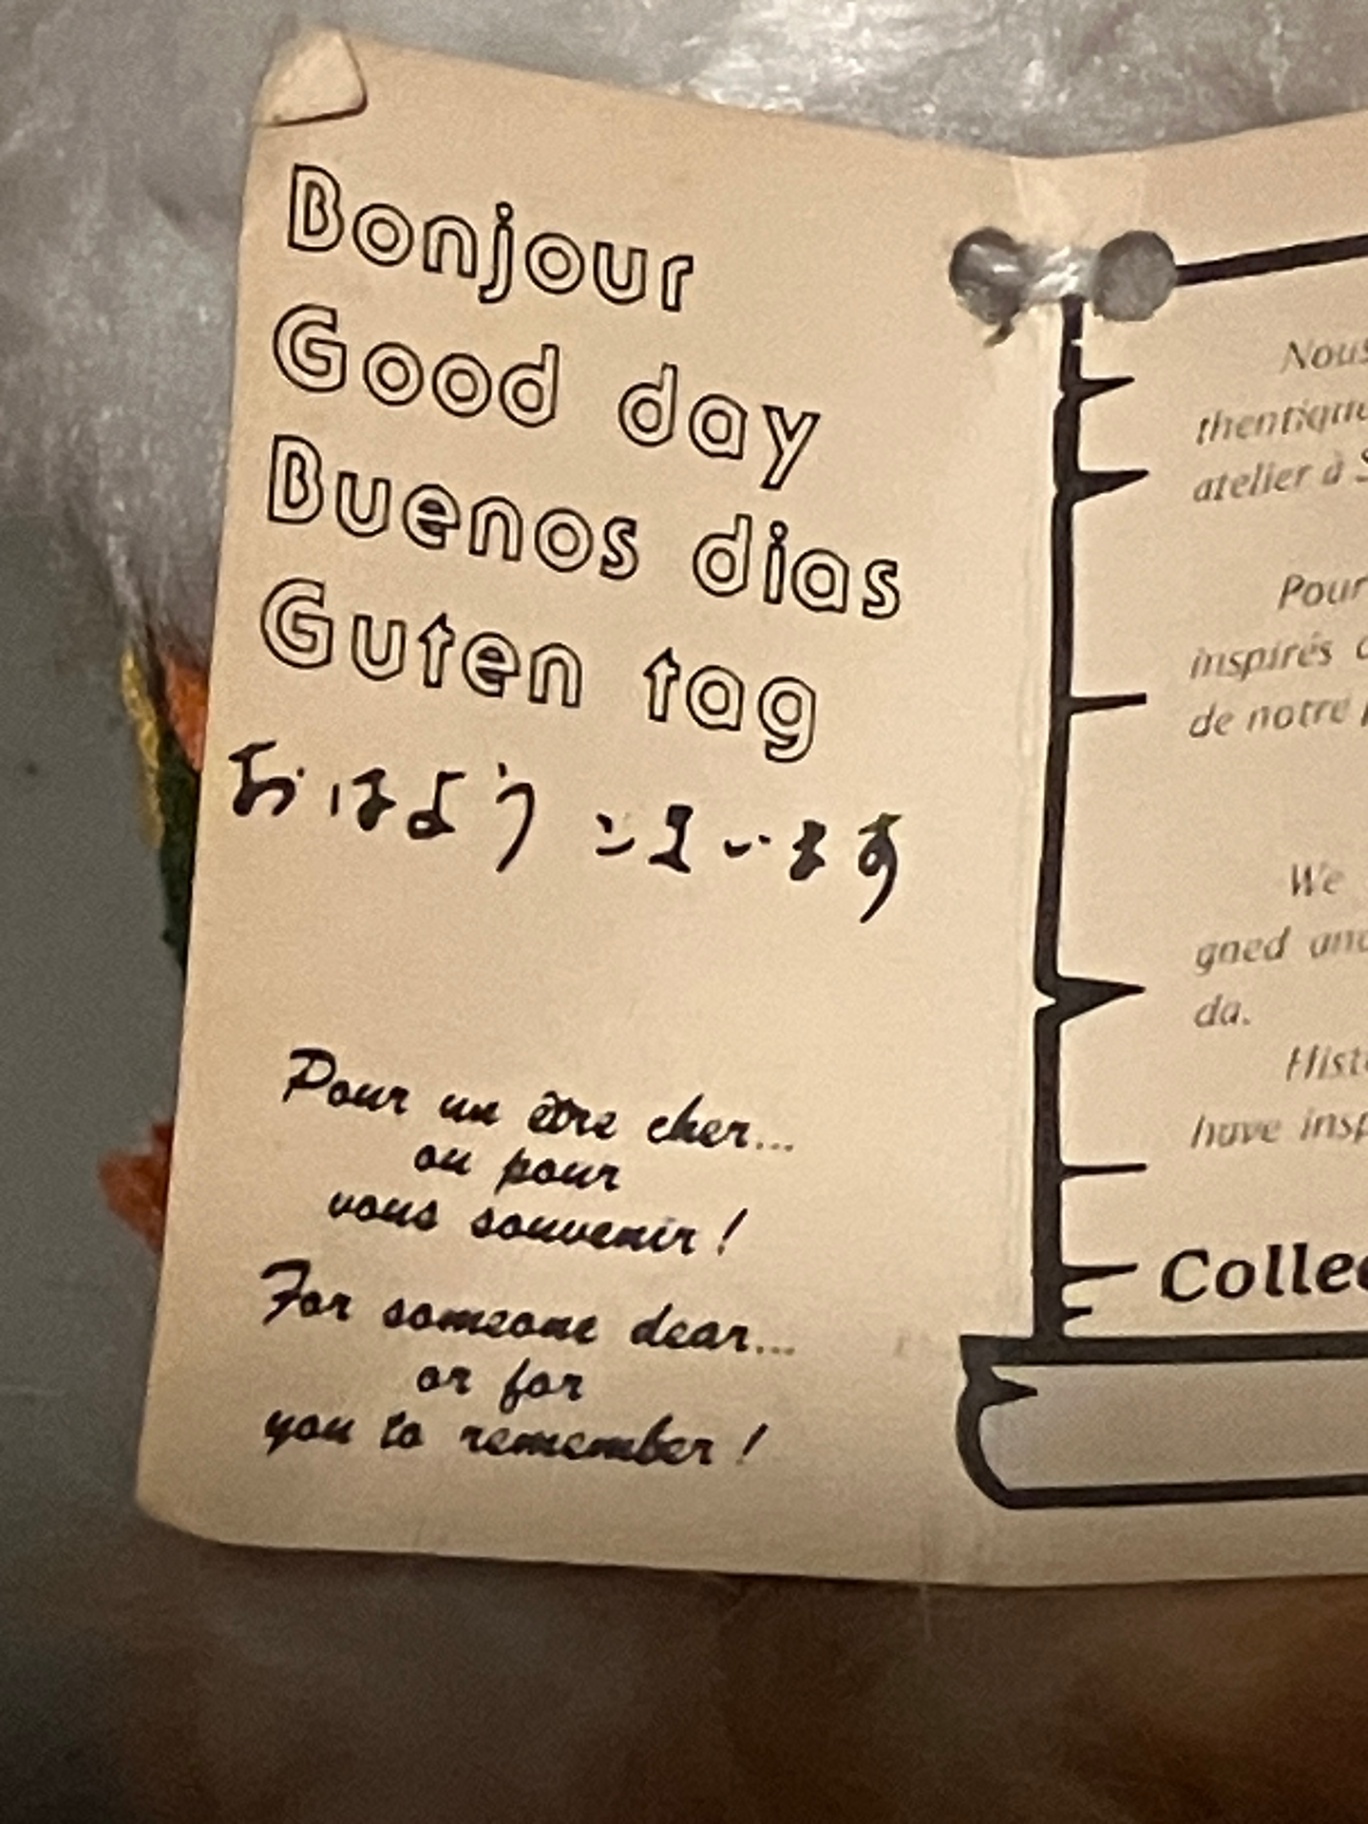 Bonjour
Good day
Buenos dias
Guten tag
おはようございます
Pour un être cher...
ou pour
vous souvenir !
For someone dear...
or for
you to remember !
Nous
thentique
atelier à
Pour
inspirés
de notre
We
gned and
da.
have